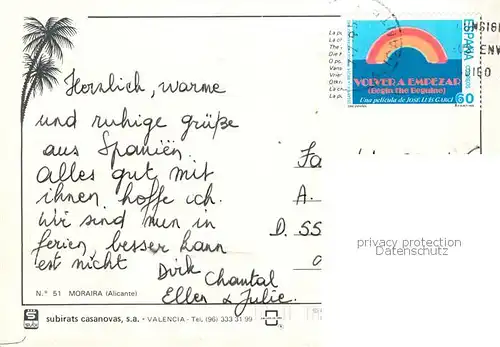 Herrlich, warme
und ruhige grüße
aus Spaniën.
alles gut mit
ihnen hoffe ich.
Wir sind nun in
ferien, besser kann
est nicht
Dirk
Chantal
Ellen & Julie.
Fa
A.
D. 55
N.º 51 MORAIRA (Alicante)
subirats casanovas, s.a. • VALENCIA - Tel. (96) 333 31 99
ESPAÑA
CORREOS
VOLVER A EMPEZAR
(Begin the Beguine)
Una película de JOSÉ LUIS GARCI
60
privacy protection
Datenschutz